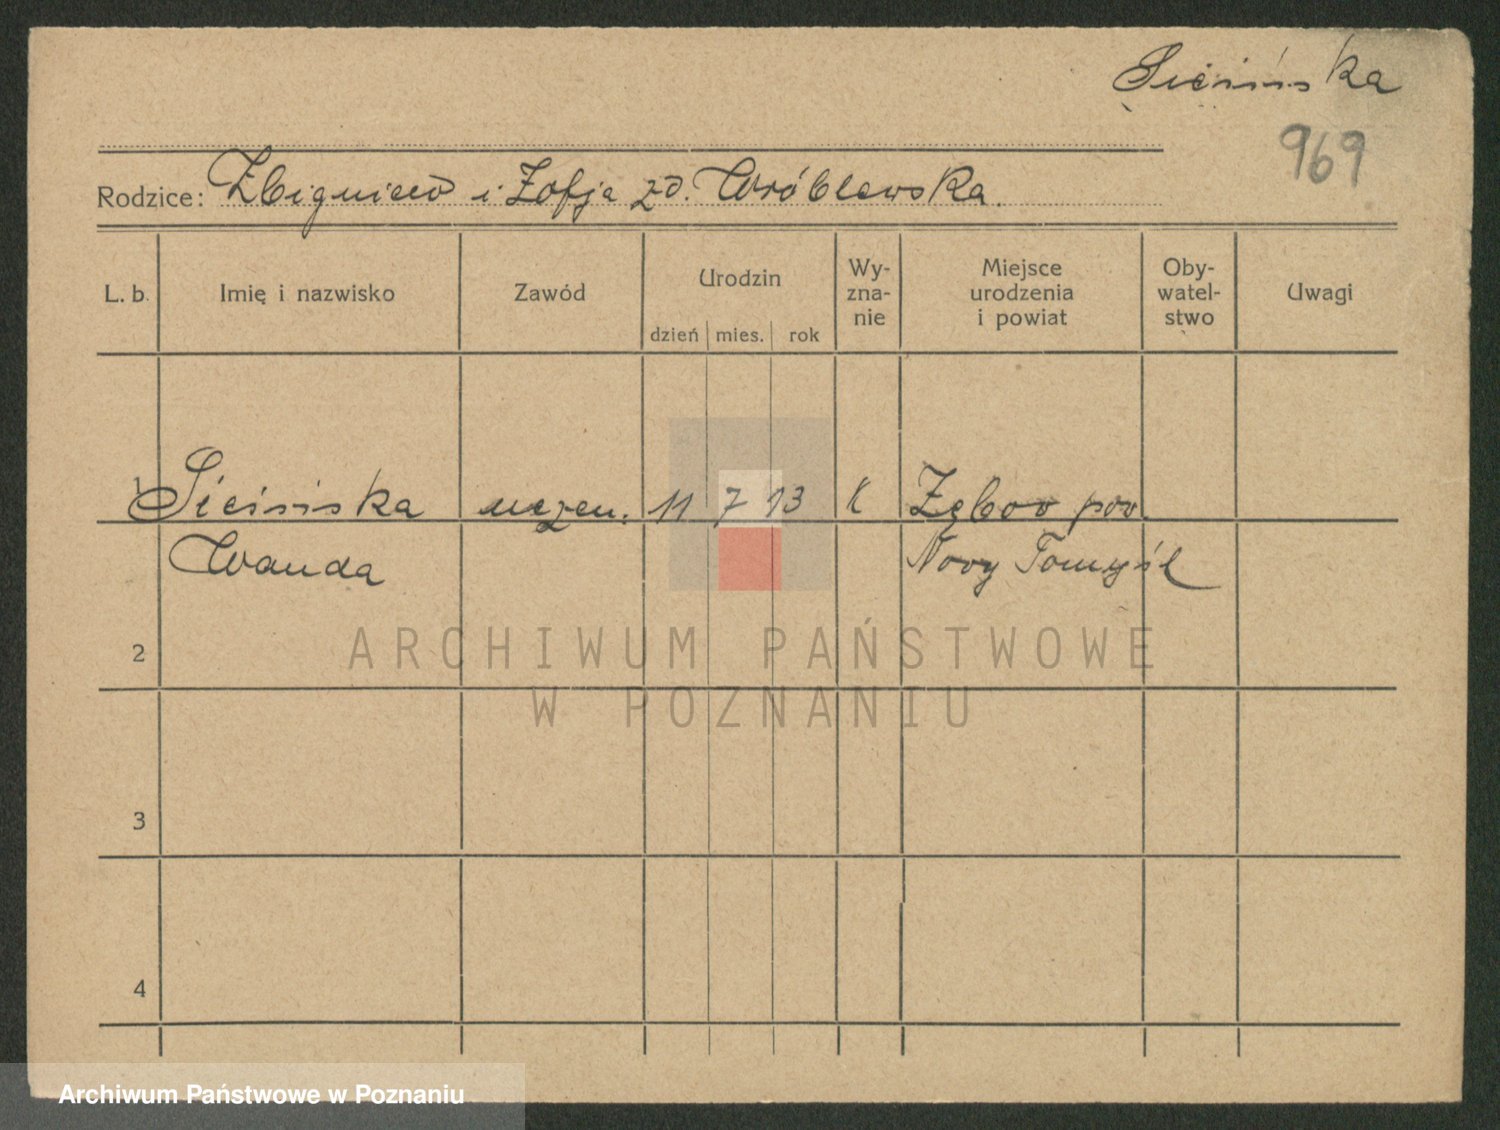 Sicińska
969
Rodzice: Zbigniew i Zofja zd. Wróblewska.
L. b. Imię i nazwisko Zawód Urodzin dzień mies. rok Wy-zna-nie Miejsce urodzenia i powiat Oby-watel-stwo Uwagi
1 Sicińska uczen. 11 7 13 K Zębowo pow.
Wanda Nowy Tomyśl
2
3
4
ARCHIWUM PAŃSTWOWE
W POZNANIU
Archiwum Państwowe w Poznaniu